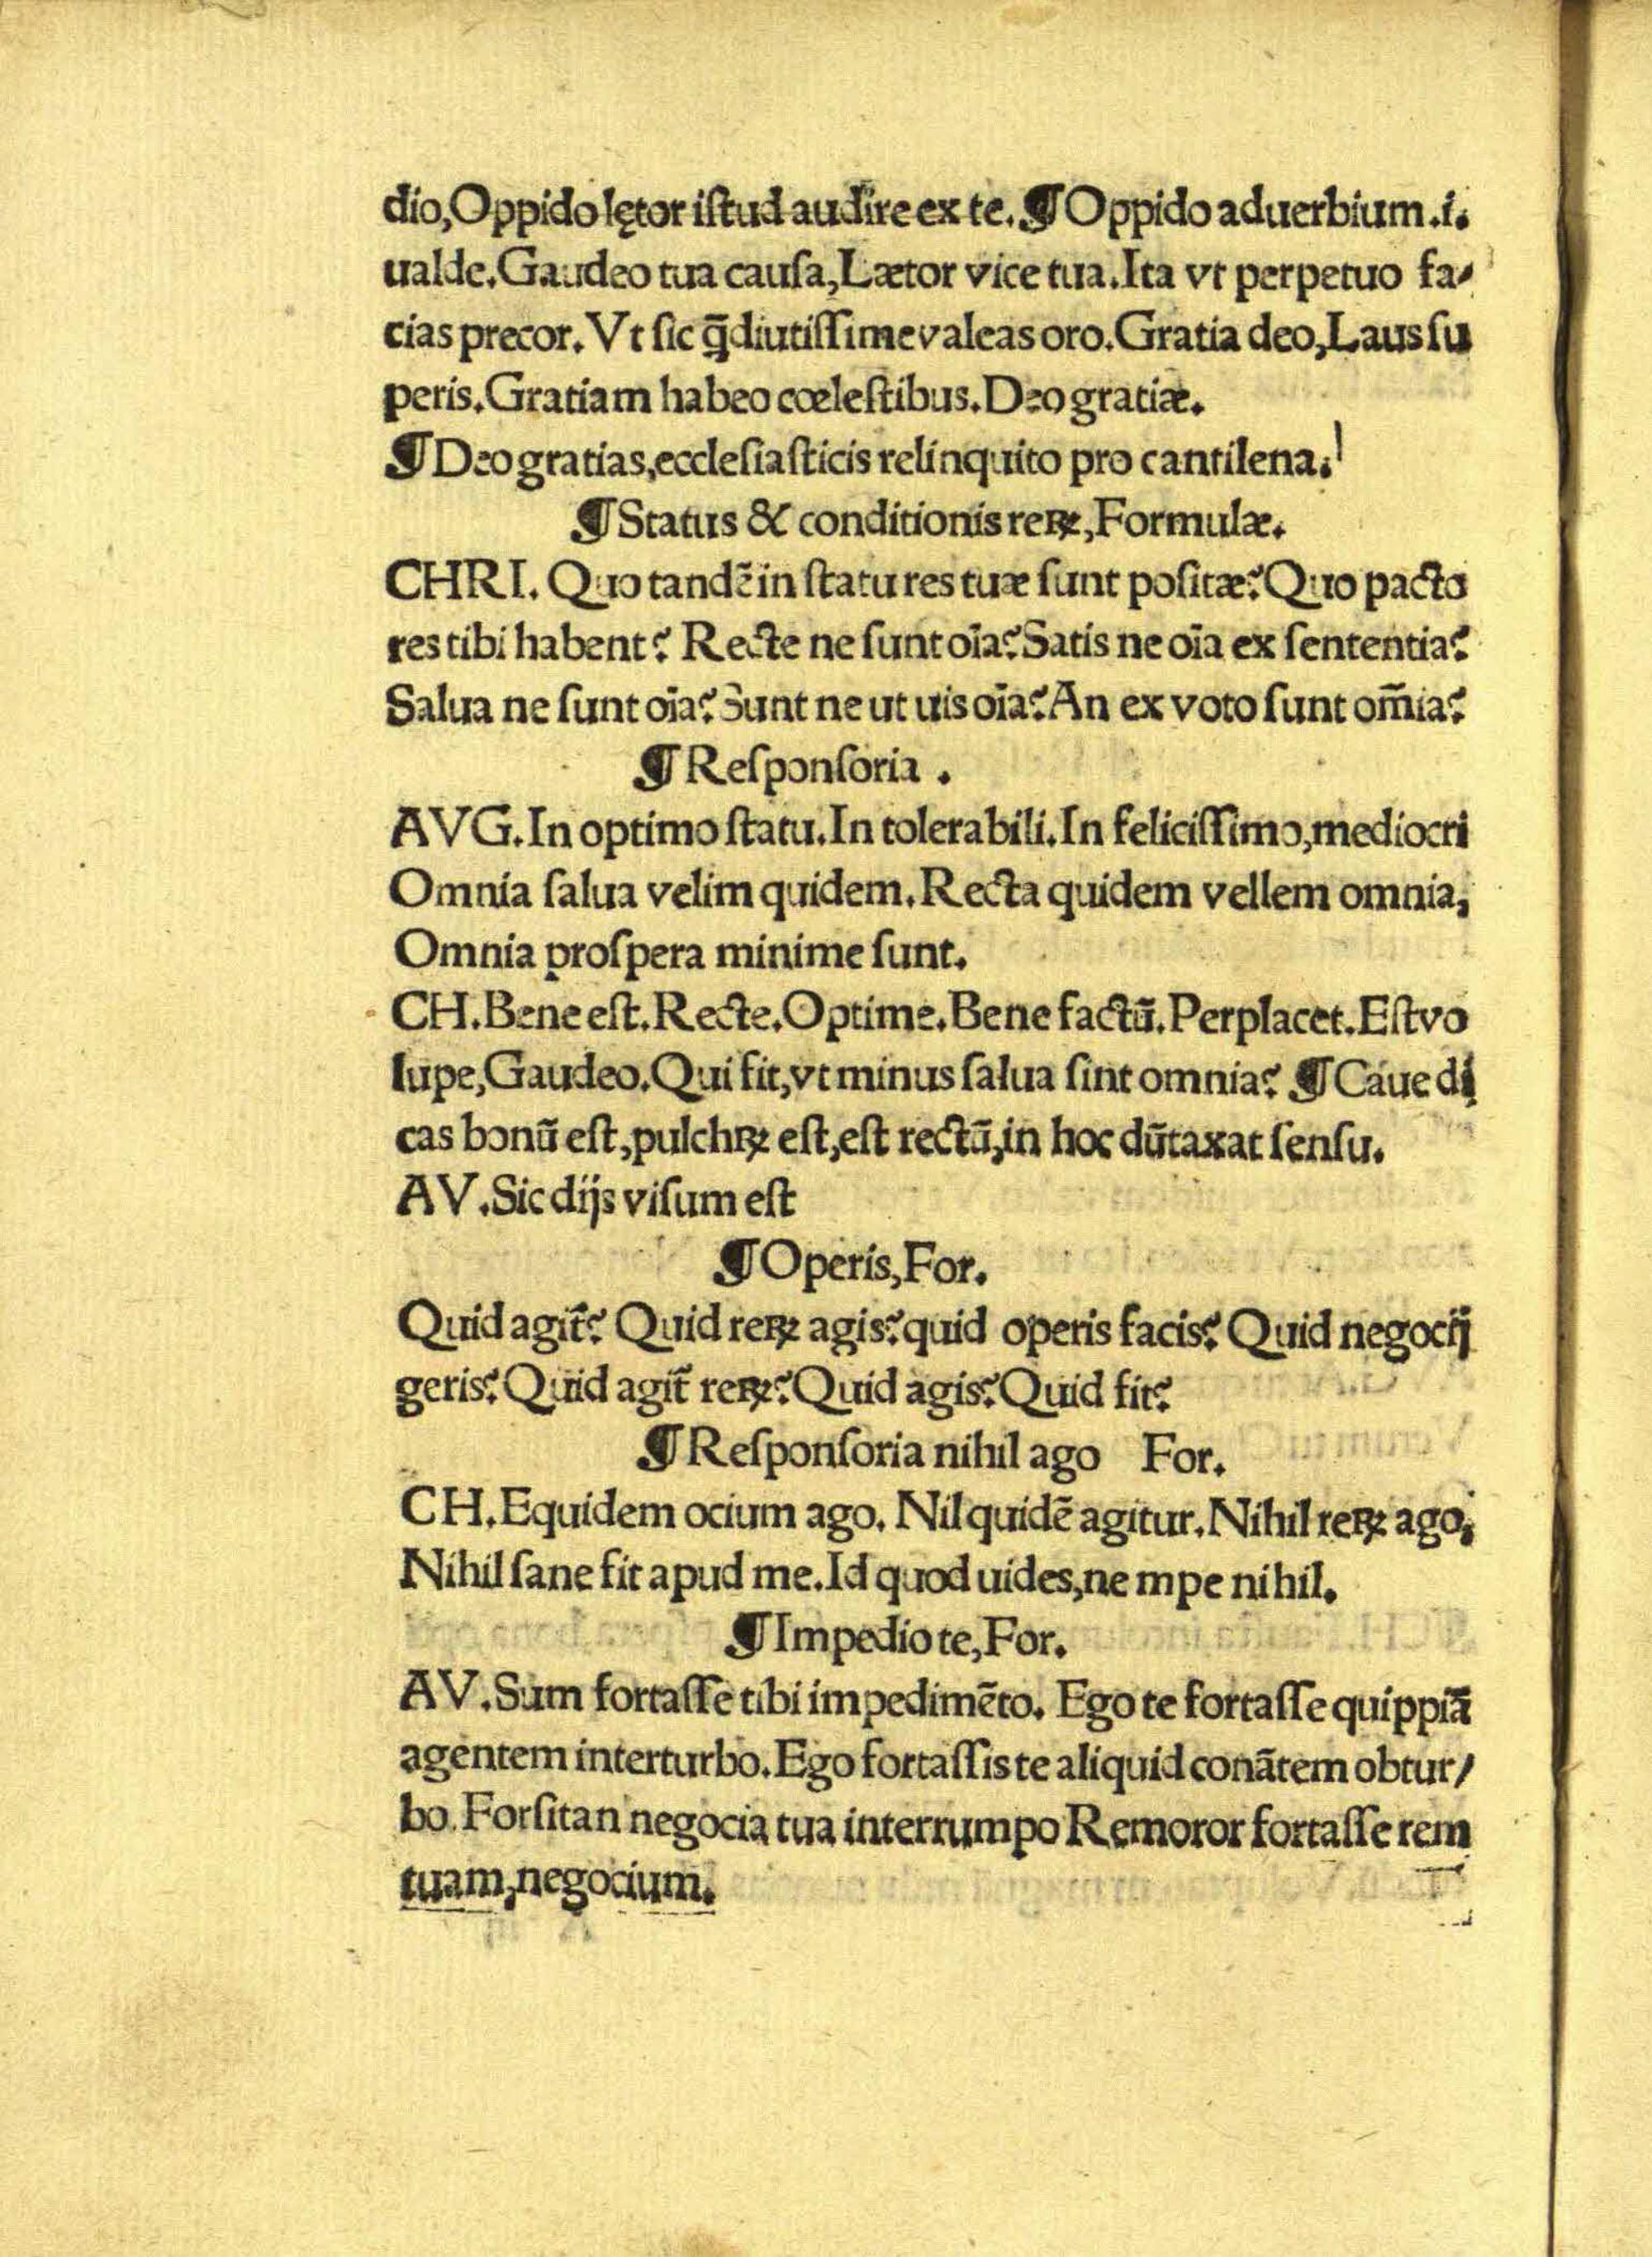 dio,Oppido lętor iſtud audire ex te.¶Oppido aduerbium.i.
ualde.Gaudeo tua cauſa,Lætor vice tua.Ita vt perpetuo fa⸗
cias precor. Vt ſic q̄diutiſſime valeas oro.Gratia deo,Laus ſu
peris.Gratiam habeo cœleſtibus.Deo gratiæ.
¶Deo gratias,eccleſiaſticis relinquito pro cantilena.
¶Status & conditionis reꝝ,Formulæ.
CHRI. Quo tandē in ſtatu res tuæ ſunt poſitæ?Quo pacto
res tibi habent? Recte ne ſunt oīa?Satis ne oīa ex ſententia?
Salua ne ſunt oīa?Sunt ne ut uis oīa?An ex voto ſunt om̄ia?
¶Reſponſoria .
AVG.In optimo ſtatu.In tolerabili.In feliciſſimo,mediocri
Omnia ſalua velim quidem.Recta quidem vellem omnia,
Omnia proſpera minime ſunt.
CH.Bene eſt.Recte.Optime.Bene factū.Perplacet.Eſt vo
lupe,Gaudeo.Qui fit,vt minus ſalua ſint omnia? ¶Caue di
cas bonū eſt,pulchꝝ eſt,eſt rectū,in hoc dūtaxat ſenſu.
AV.Sic dijs viſum eſt
¶Operis,For.
Quid agit̄? Quid reꝝ agis?quid operis facis? Quid negocij
geris?Quid agit̄ reꝝ?Quid agis?Quid fit?
¶Reſponſoria nihil ago For.
CH.Equidem ocium ago. Nil quidē agitur.Nihil reꝝ ago,
Nihil ſane fit apud me.Id quod uides,nempe nihil.
¶Impedio te,For.
AV.Sum fortaſſe tibi impedimēto. Ego te fortaſſe quippiā
agentem interturbo.Ego fortaſſis te aliquid conātem obtur/
bo.Forſitan negocia tua interrumpo Remoror fortaſſe rem
tuam,negocium.